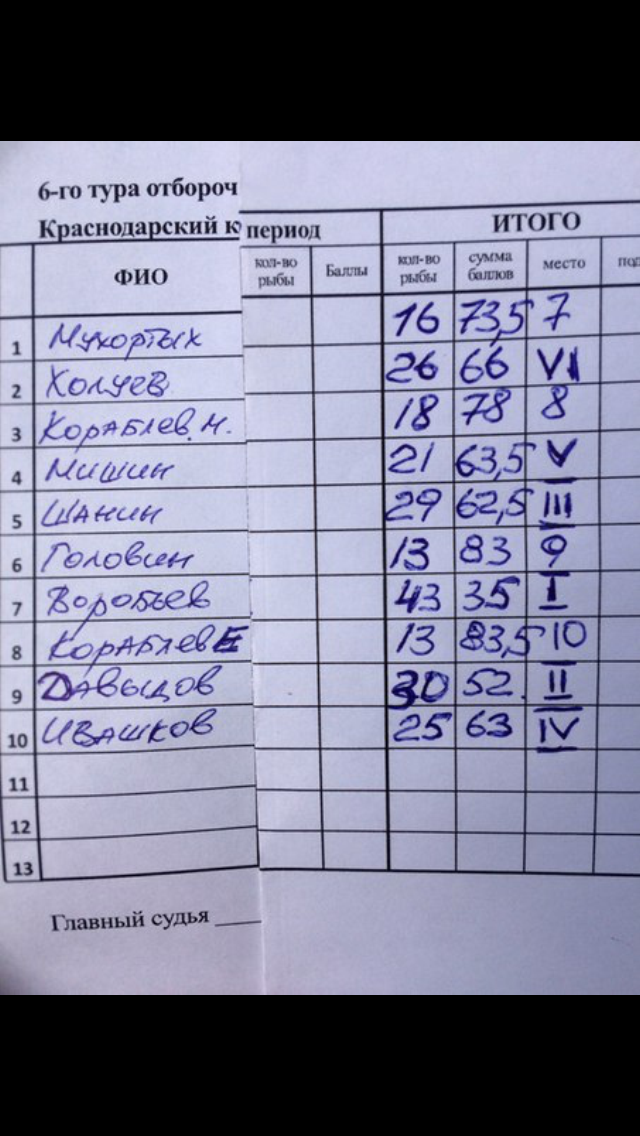 6-го тура отбороч
Краснодарский к период ИТОГО
ФИО кол-во рыбы Баллы кол-во рыбы сумма баллов место под
1 Мухортых 16 73,5 7
2 Холуев 26 66 VI
3 Кораблев.М. 18 78 8
4 Мишин 21 63,5 V
5 Шанин 29 62,5 III
6 Головин 13 83 9
7 Воробьев 43 35 I
8 Кораблев Е 13 83,5 10
9 Давыдов 30 52. II
10 Ивашков 25 63 IV
11
12
13
Главный судья